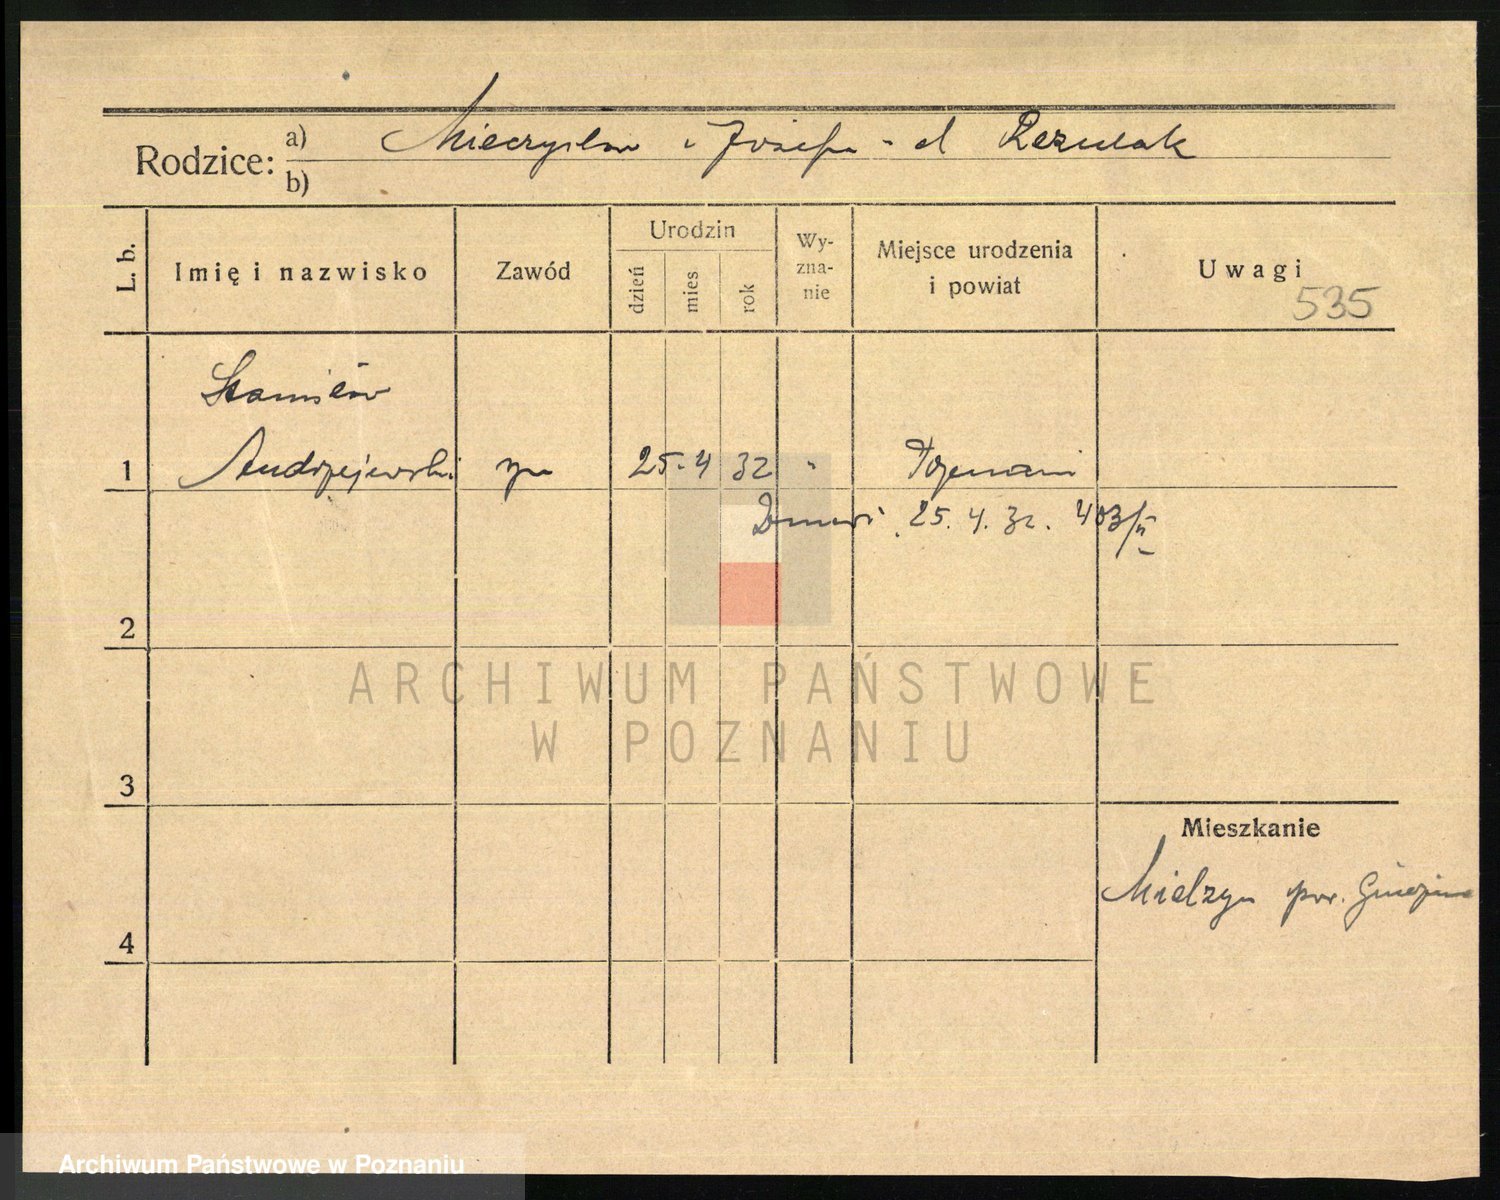 Rodzice: a) Mieczysław i Józefa - d Rezulak
b)
L. b. Imię i nazwisko Zawód Urodzin dzień mies rok Wy-zna-nie Miejsce urodzenia i powiat Uwagi
535
Stanisław
1 Andrzejewski syn 25. 4 32 " Poznani
25. 4. 32. 403/II
2
3
Mieszkanie
Mielżyn pow. Gniezno
4
ARCHIWUM PAŃSTWOWE
W POZNANIU
Archiwum Państwowe w Poznaniu